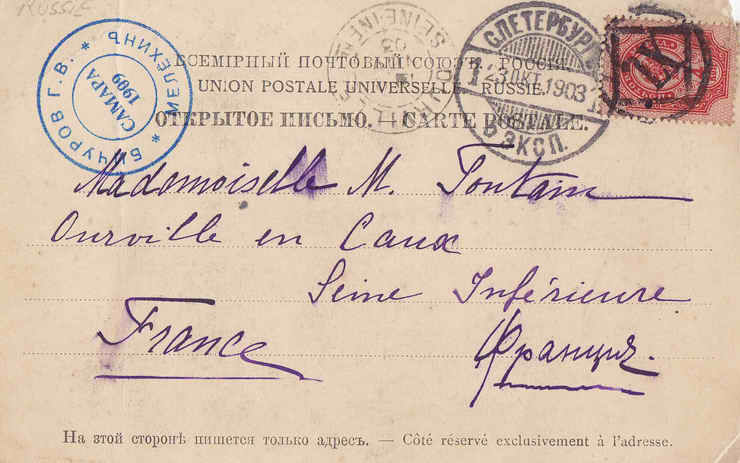 RUSSIE
ВСЕМІРНЫЙ ПОЧТОВЫЙ СОЮЗЪ. РОССІЯ.
UNION POSTALE UNIVERSELLE. RUSSIE.
ОТКРЫТОЕ ПИСЬМО. — CARTE POSTALE.
БИЧУРОВ Г.В. * МЕЛЕХИНЪ *
САМАРА
1909
SEINE-INF
С.ПЕТЕРБУРГ
23 ОКТ. 1903
9 ЭКСП.
Mademoiselle M. Fontain
Ourville en Caux
Seine Inférieure
France
Франція.
На этой сторонѣ пишется только адресъ. — Côté réservé exclusivement à l'adresse.